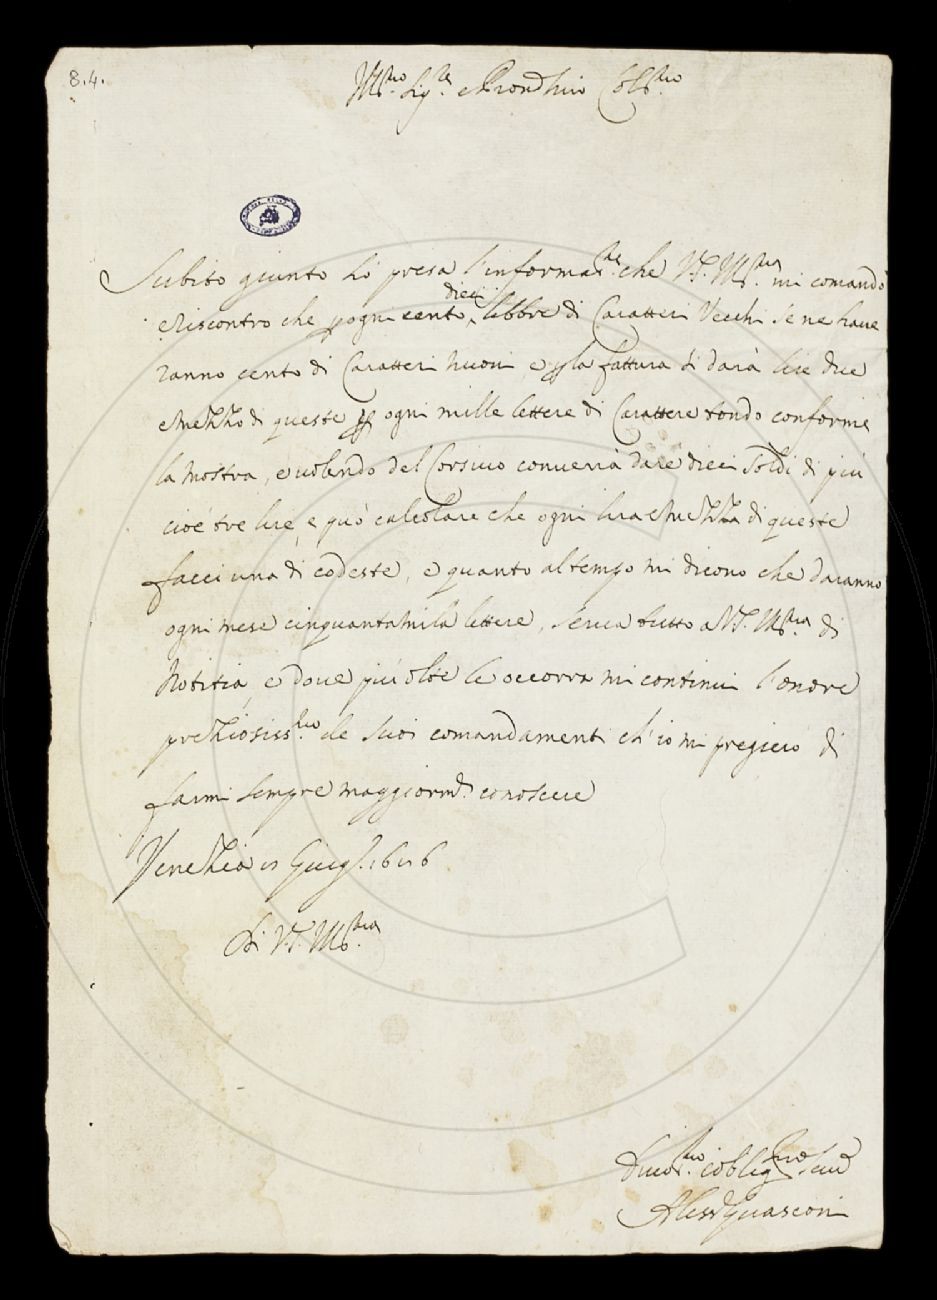 8.4.
Ill.mo Sig.re e Pron Col.mo
Subito giunto hò presa l'informa.ne che V.S. Ill.ma mi comandò
e Riscontro che p ogni cento dieci libbre di Caratteri Vecchi se ne have
ranno cento di Caratteri nuovi, e p la fattura si darà lire due
e mezzo di queste p ogni mille lettere di Carattere tondo conforme
la mostra, e volendo del Corsivo converrà dare dieci soldi di più
cioè tre lire, e può calcolare che ogni lira e mezza di queste
facci una di codeste, e quanto al tempo mi dicono che daranno
ogni mese cinquanta mila lettere, serva tutto a V.S. Ill.ma di
Notitia, e dove più oltre le occorra mi continui l'onore
preziosiss.mo de suoi comandamenti ch'io mi pregierò di
farmi sempre maggiorm.te conoscere
Venezia Giug.
Di V.S. Ill.ma
Devo.mo e oblig.mo Serv.e
Aless.o Guasconi